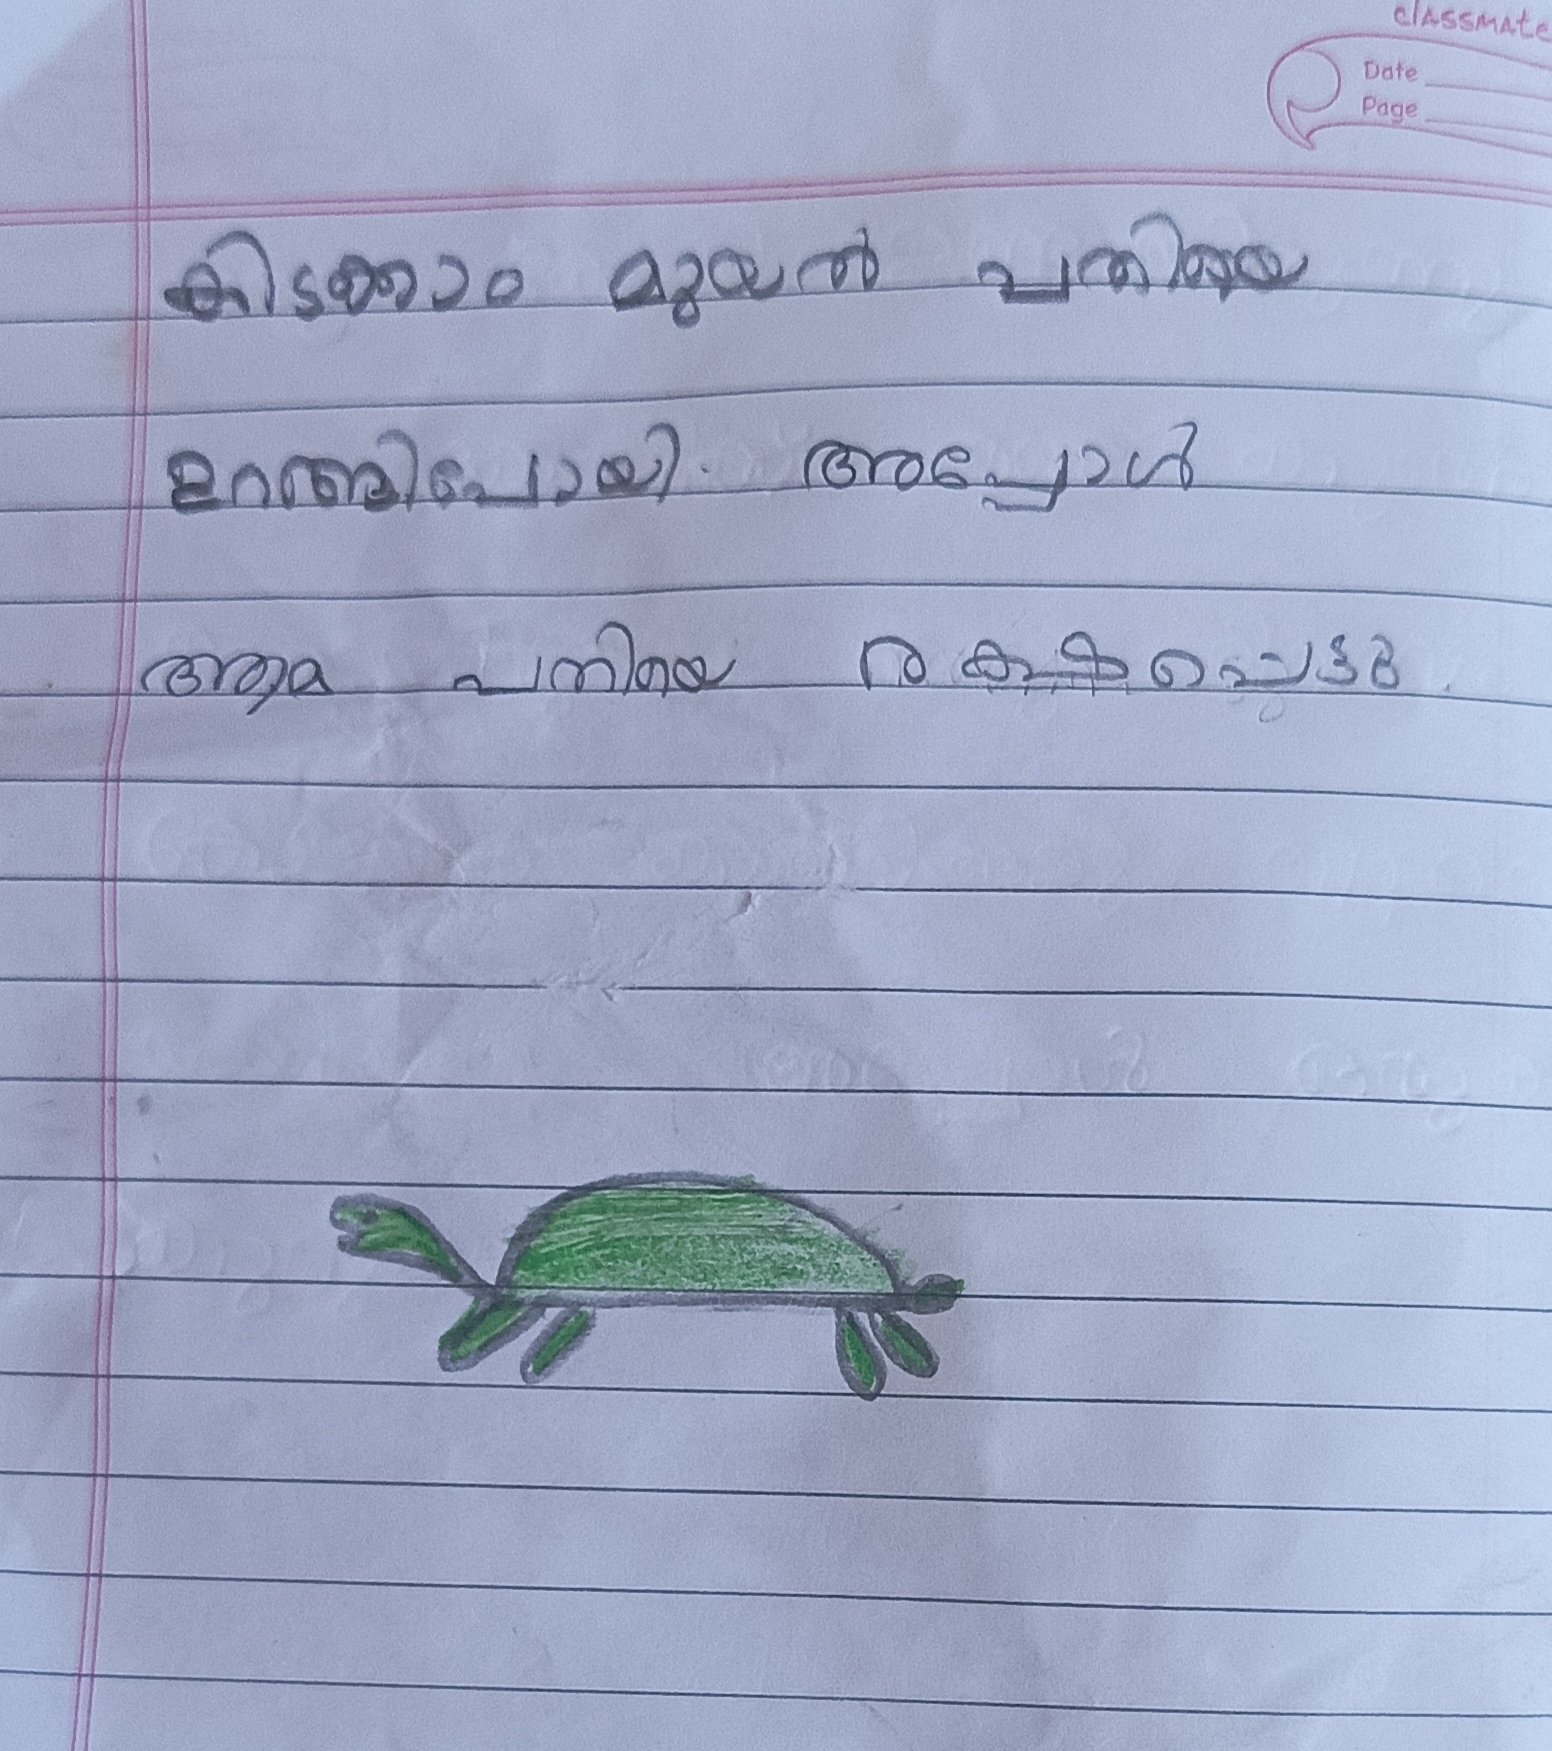 classmate
Date
Page
കിടക്കാം മുയൽ പതിയെ
ഉറങ്ങിപോയി. അപ്പോൾ
ആമ പതിയെ